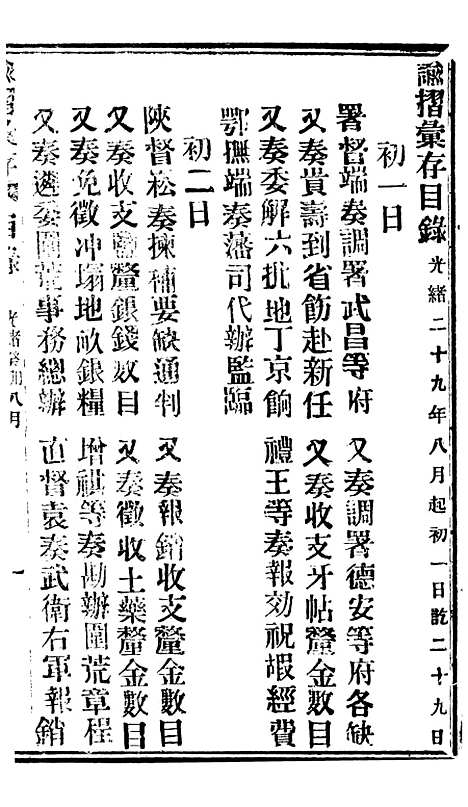 諭摺彙存目錄 光緒二十九年八月起初一日訖二十九日
初一日
署督端奏調署武昌等府 又奏調署德安等府各缺
又奏貴壽到省飭赴新任 又奏收支牙帖釐金數目
又奏委解六批地丁京餉 禮王等奏報効祝嘏經費
鄂撫端奏藩司代辦監臨
初二日
陝督崧奏揀補要缺通判 又奏報銷收支釐金數目
又奏收支釐銀錢數目 又奏徵收土藥釐金數目
又奏免徵冲塌地畝銀糧 增祺等奏勘辦圍荒章程
又奏遴委圍荒事務總辦 直督袁奏武衛右軍報銷
光緒 八月 一